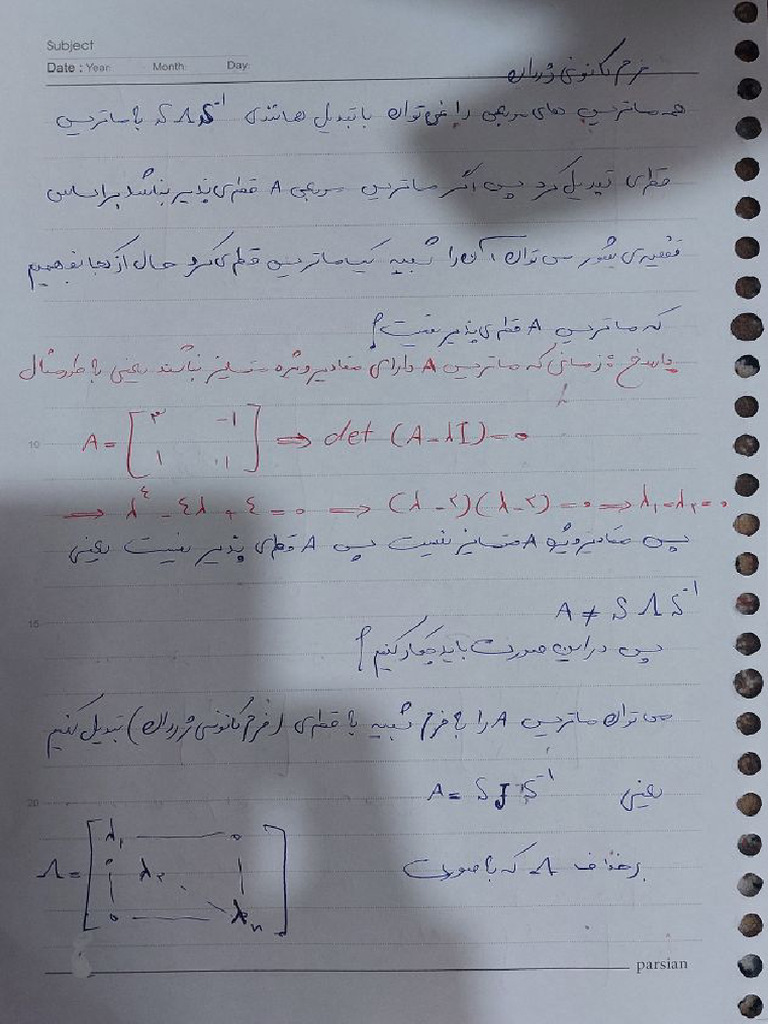 Subject
Date : Year Month Day
فرم کانونی ژوردان
همه ماتریس های مربعی را نمی توان با تبدیل همانندی SΛS⁻¹ به ماتریس
قطری تبدیل کرد پس اگر ماتریس مربعی A قطری پذیر نباشد بر اساس
قضیه ی شور می توان آن را شبیه یک ماتریس قطری کرد حال از کجا بفهمیم
که ماتریس A قطری پذیر نیست؟
پاسخ: زمانی که ماتریس A دارای مقادیر ویژه متمایز نباشد یعنی به طور مثال
10
A = [۳ -۱ ; ۱ ۱] ⇒ det (A - λI) = 0
⇒ λ² - ٤λ + ٤ = 0 ⇒ (λ - ۲)(λ - ۲) = 0 ⇒ λ₁ = λ₂ = ۰
پس مقادیر ویژه A متمایز نیست پس A قطری پذیر نیست یعنی
A ≠ SΛS⁻¹
15
پس در این صورت باید چکار کنیم؟
می توان ماتریس A را به فرم شبیه به قطری (فرم کانونی ژوردان) تبدیل کنیم
یعنی A = SJS⁻¹
20
بر خلاف Λ که به صورت Λ = [λ₁ 0 ; 0 λ₂ ; 0 λₙ]
parsian